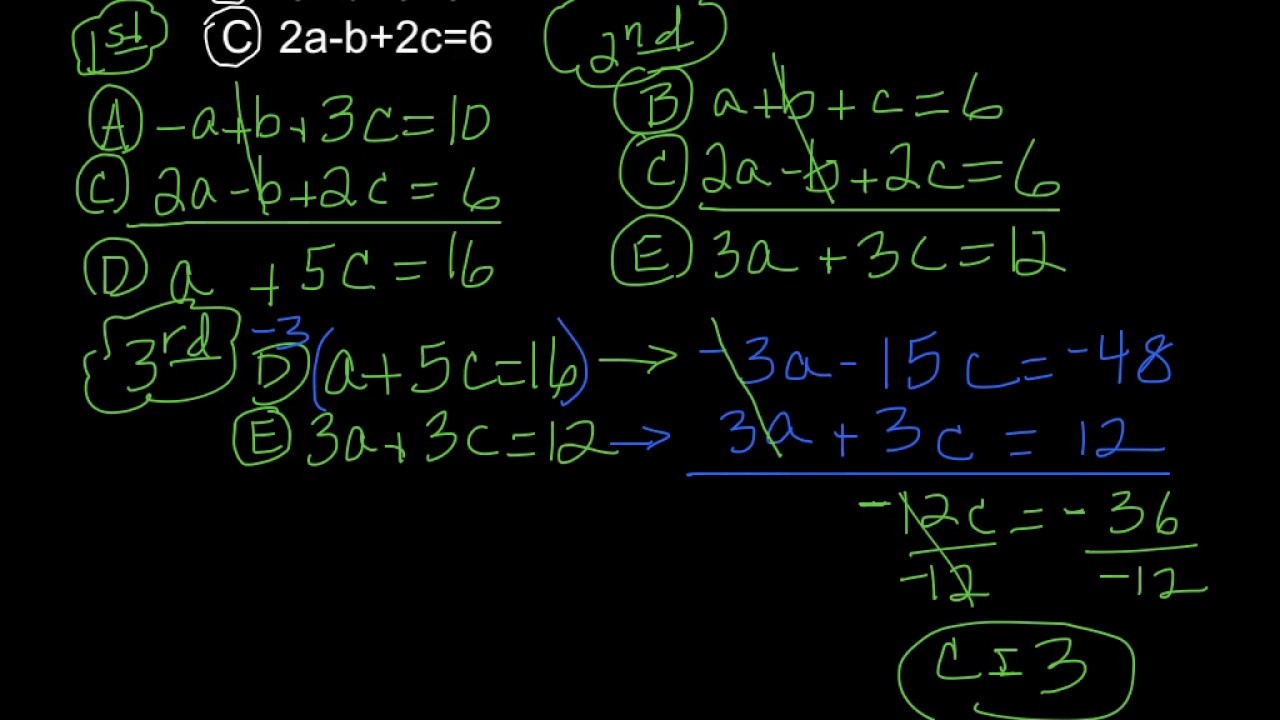 1st
Ⓒ 2a-b+2c=6
2nd
Ⓐ -a+b+3c=10
Ⓒ 2a-b+2c=6
Ⓓ a +5c=16
Ⓑ a+b+c=6
Ⓒ 2a-b+2c=6
Ⓔ 3a+3c=12
3rd
-3
Ⓓ(a+5c=16) → -3a-15c=-48
Ⓔ 3a+3c=12 → 3a+3c=12
-12c=-36
-12 -12
c=3